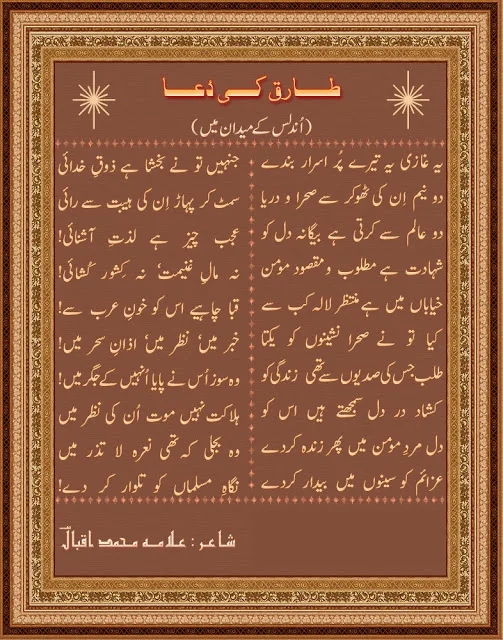 طارق کی دعا
(اُندلس کے میدان میں)
یہ غازی یہ تیرے پُر اسرار بندے جنہیں تو نے بخشا ہے ذوقِ خدائی
دو نیم اِن کی ٹھوکر سے صحرا و دریا سمٹ کر پہاڑ اِن کی ہیبت سے رائی
دو عالم سے کرتی ہے بیگانہ دل کو عجب چیز ہے لذتِ آشنائی!
شہادت ہے مطلوب و مقصودِ مومن نہ مالِ غنیمت نہ کشور کُشائی!
خیاباں میں ہے منتظر لالہ کب سے قبا چاہیے اس کو خونِ عرب سے!
کیا تو نے صحرا نشینوں کو یکتا خبر میں، نظر میں، اذانِ سحر میں!
طلب جس کی صدیوں سے تھی زندگی کو وہ سوز اُس نے پایا اُنہیں کے جگر میں!
کشادِ درِ دل سمجھتے ہیں اس کو ہلاکت نہیں موت اُن کی نظر میں
دلِ مردِ مومن میں پھر زندہ کردے وہ بجلی کہ تھی نعرہ لا تذر میں
عزائم کو سینوں میں بیدار کردے نگاہِ مسلماں کو تلوار کر دے!
شاعر : علامہ محمد اقبالؒ